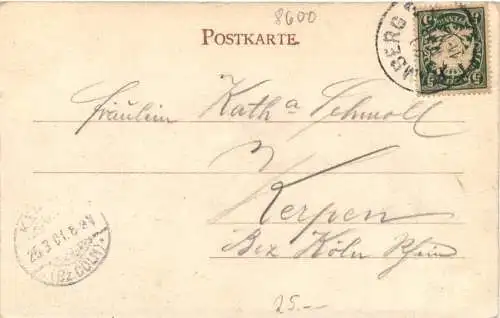 8600
POSTKARTE.
BERG
Fräulein Kath a Schmoll
Kerpen
Bez Köln Rhein
25.3.01.8-9V
(Bz.CÖLN)
25.--